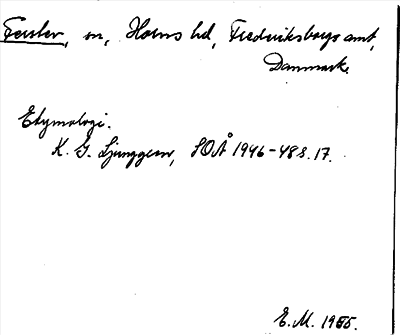 Ferslev, sn, Horns hd, Frederiksborgs amt,
Danmark.
Etymologi.
K. G. Ljunggren, SOÅ 1946-48 s. 17.
E.M. 1955.